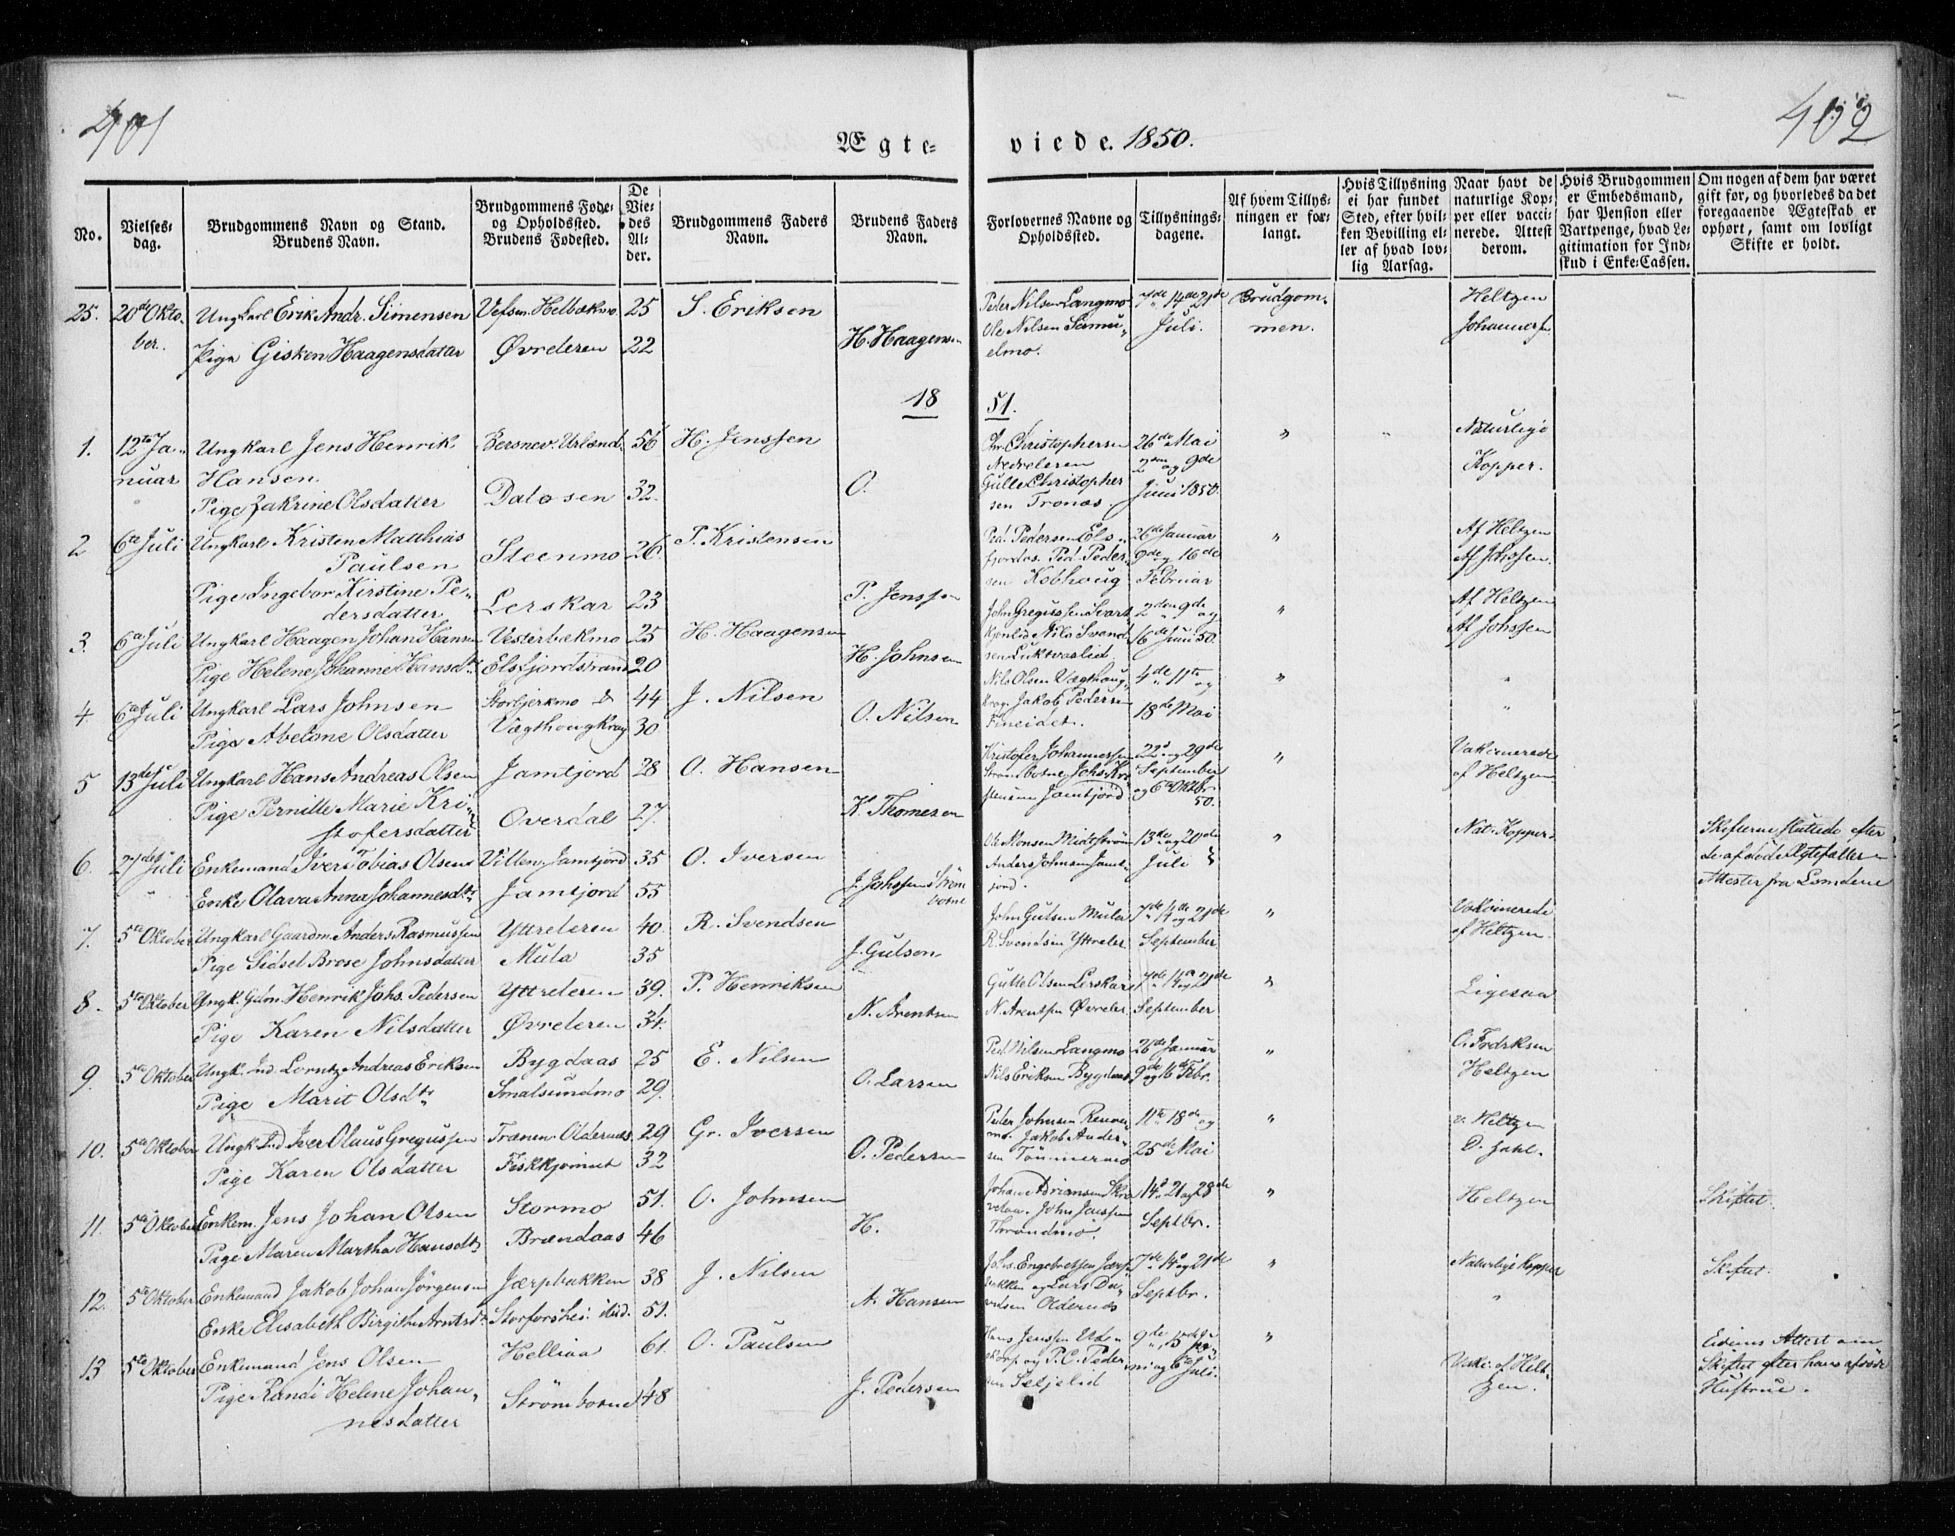 401
402
Ægte-
viede. 1850.
No.
Vielses-
dag.
Brudgommens Navn og Stand.
Brudens Navn.
Brudgommens Føde-
og Opholdssted.
Brudens Fødested.
De
Vie-
des
Al-
der.
Brudgommens Faders
Navn.
Brudens Faders
Navn.
Forlovernes Navne og
Opholdssted.
Tillysnings-
dagene.
Af hvem Tillys-
ningen er for-
langt.
Hvis Tillysning
ei har fundet
Sted, efter hvil-
ken Bevilling el-
ler af hvad lov-
lig Aarsag.
Naar havt de
naturlige Kop-
per eller vacci-
nerede. Attest
derom.
Hvis Brudgommen
er Embedsmand,
har Pension eller
Vartpenge, hvad Le-
gitimation for Ind-
skud i Enke-Cassen.
Om nogen af dem har været
gift før, og hvorledes da det
foregaaende Ægteskab er
ophørt, samt om lovligt
Skifte er holdt.
25. 20de Okto-
ber.
Ungkarl Erik Andr. Simensen
Pige Gisken Haagensdatter
Vefsen. Helbækmo
Øvrderen
25
22
S. Eriksen
H. Haagensen
Peder Nilsen Langmo
Ole Nilsen Samu-
elmo.
7de 14de 21de
Juli.
Brudgom-
men.
Heltzen
Johannes
18
51.
1. 12te Ja-
nuar
Ungkarl Jens Henrik
Hansen
Pige Zakrine Olsdatter
Dalosen
56
32.
H. Jenssen
O.
Christophersen
Nedreleren
Gulle Christopher
sen Tronæs
26de Mai
2den og 9de
Juni 1850.
"
"
Naturlige
Kopper.
2 6te Juli
Ungkarl Kristen Matthias
Paulsen
Pige Ingebor Kirstine Pe-
dersdatter
Steenmo
Lerskar
26.
23
P. Kristensen
P. Jenssen
Ped. Pedersen Els-
fjordos. Ped. Peder-
sen Kobhoug
26de Januar
9de og 16de
Februar
"
Af Heltzen
Af Johssen.
3. 6te Juli
Ungkarl Haagen Johan Hansen
Pige Helene Johanne Hansdtr
Vesterbækmo
Elsfjordstrand
25
20
H. Haagensen
H. Johnsen
John Gregussen Svart-
kjønlid Nils Svend
sen Luktvaslid.
2den 9de og
16de Juni 50.
"
Af Heltzen
Af Johssen
4 6te Juli
Ungkarl Lars Johnsen
Pige Abelone Olsdatter
Storbjerkmo &
Vægthougkrog
44
30
J. Nilsen
O. Nilsen
Nils Olsen Vægthoug-
krog. Jakob Pedersen
Fineidet.
4de 11te og
18de Mai
"
"
"
5 13de Juli
Ungkarl Hans Andreas Olsen
Pige Pernille Marie Kri-
stofersdatter
Jamtjord
Overdal
28
27.
O. Hansen
K. Thomesen
Kristofer Johannessen
Strømbotne, Johs Kri
stensen Jamtjord
22d og 29de
September
og 6te Oktbr
50.
"
Vakcinerede
af Heltzen
6. 27de Juli
"
Enkemand Iver Tobias Olsen
Enke Olava Anna Johannesdtr
Villen. Jamtjord
Jamtjord
35
55
O. Iversen
J. Johssen Strøm
botne
Ole Monsen Midtstrøm
Anders Johnsen Jamt-
jord.
13de og 20de
Juli
"
Nat. Kopper.
Skifterne sluttede efter
de afdøde Ægtefæller
Attester fra
7. 5te Oktober
Ungkarl Gaardm. Anders Rasmussen
Pige Sidsel Brese Johnsdatter
Yttrederen
Mula
40.
35
R. Svendsen
J. Gulson
John Gulsen Muler
R. Svendsen Yttreler
7de 14de og 21de
September
"
Vakcinerede
af Heltzen.
8. 5te Oktober
Ungk. Gdm. Henrik Johs. Pedersen
Pige Karen Nilsdatter
Yttrederen
Øvrederen
39.
34.
P. Henriksen
N. Arentsen
Gulle Olsen Lerskar
N. Arentsen Øvreler
7de 14de og 21de
September
"
Ligesaa
9. 5te Oktober
Ungk. Ind. Lorntz Andreas Eriksen
Pige Marit Olsdtr
Bygdaas
Smalsundmo
25
29.
E. Nilsen
O. Larsen
Ped. Nilsen Langmo
Nils Eriksen Bygdaas
26de Januar
9de og 16de Febr.
"
O. Fredriksen
Heltzen
10. 5te Oktober
Ungk. Ind Iver Olaus Gregussen
Pige Karen Olsdatter
Trænen Oldernæs
29
32
Gr. Iversen
O. Pedersen
Peder Johnsen
mo. Jakob Ander-
sen Tømmermo
11te 18de og
25de Mai
"
v. Heltzen
D. Zahl.
11. 5te Oktober
Enkem. Jens Johan Olsen
Pige Maren Martha Hansdtr
Stormo
Brændaas
51.
46
O. Johnsen
H.
Johan Adriansen
John Janssen
Throndmo.
14d 21 og 28de
Septbr.
"
Heltzen
Skiftet.
12. 5te Oktober
Enkemand Jakob Johan Jörgensen
Enke Elisabeth Birgithe Arntsdtr
Jærpbakken
Storforshei
38
51.
J. Nilsen
A. Hansen
Johs. Engebretsen Jærp-
bakken og Lars Da-
vidsen Oldernæs
7de 14d og 21de
Septbr.
"
Naturlige Kopper
"
Skiftet.
13 5te Oktober
Enkemand Jens Olsen
Pige Randi Helene Johan-
nesdatter
Helliaa
Strömbotne
61.
48
O. Paulsen
J. Pedersen
Hans Jenssen
og P. C. Peder
sen Seljelid
og 6te Juli.
"
Vakc. af Helt-
zen.
Attest om
Skiftet efter hans afdøde
Hustrue.